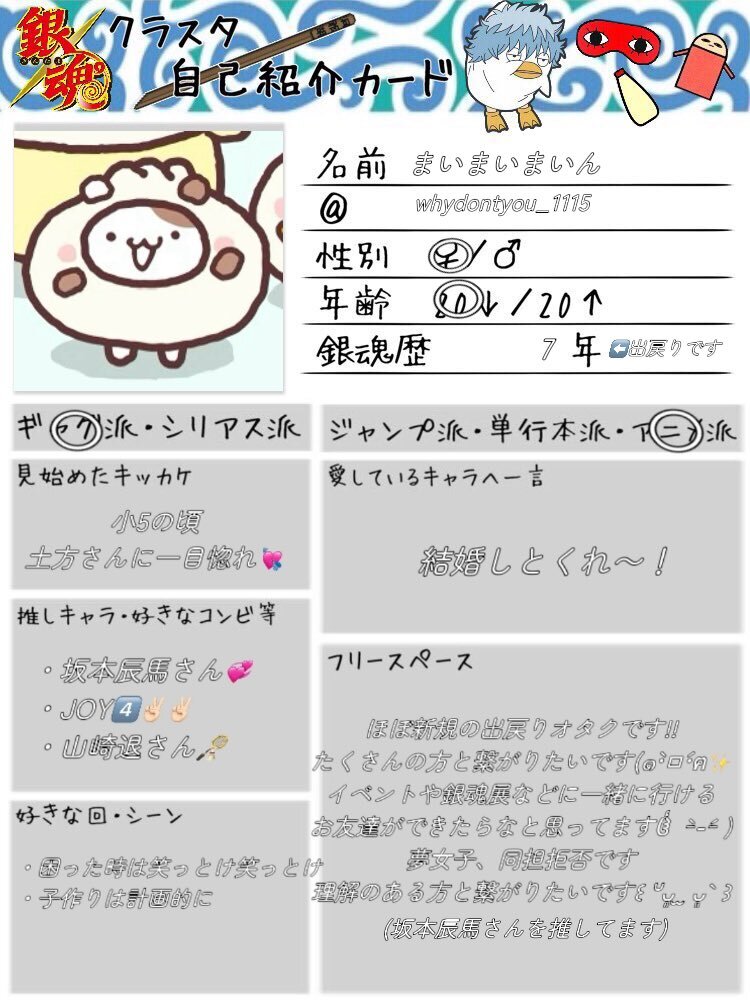 銀魂
ぎんたま
クラスタ
自己紹介カード
名前 まいまいまいん
@ whydontyou_1115
性別 ♀/♂
年齢 20↓/20↑
銀魂歴 7年 ⬅️出戻りです
ギャグ派・シリアス派
ジャンプ派・単行本派・アニメ派
見始めたキッカケ
小5の頃
土方さんに一目惚れ💘
推しキャラ・好きなコンビ等
・坂本辰馬さん💞
・JOY4️⃣✌🏻✌🏻
・山崎退さん🏸
好きな回・シーン
・困った時は笑っとけ笑っとけ
・子作りは計画的に
愛しているキャラへ一言
結婚しとくれ〜！
フリースペース
ほぼ新規の出戻りオタクです!!
たくさんの方と繋がりたいです(๑`□´ฅ✨
イベントや銀魂展などに一緒に行ける
お友達ができたらなと思ってます
夢女子、同担拒否です
理解のある方と繋がりたいです
(坂本辰馬さんを推してます)